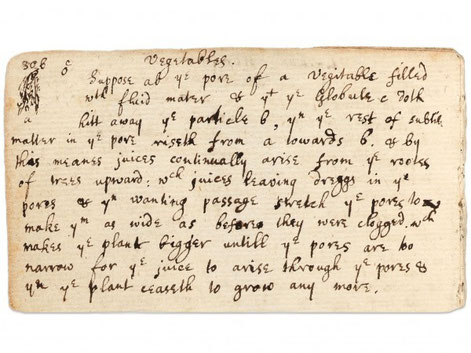 306
c
Vegetables.
Suppose ab ye pore of a Vegitable filled
wth fluid mater & yt ye Globule c doth
a
hitt away ye particle b, yn ye rest of subtil
matter in ye pore riseth from a towards b. & by
this meanes juices continually arise from ye rootes
of trees upward. wch juices leaving dreggs in ye
pores & yn wanting passage stretch ye pores to
make ym as wide as before they were clogged. wch
makes ye plant bigger untill ye pores are too
narrow for ye juice to arise through ye pores &
yn ye plant ceaseth to grow any more.